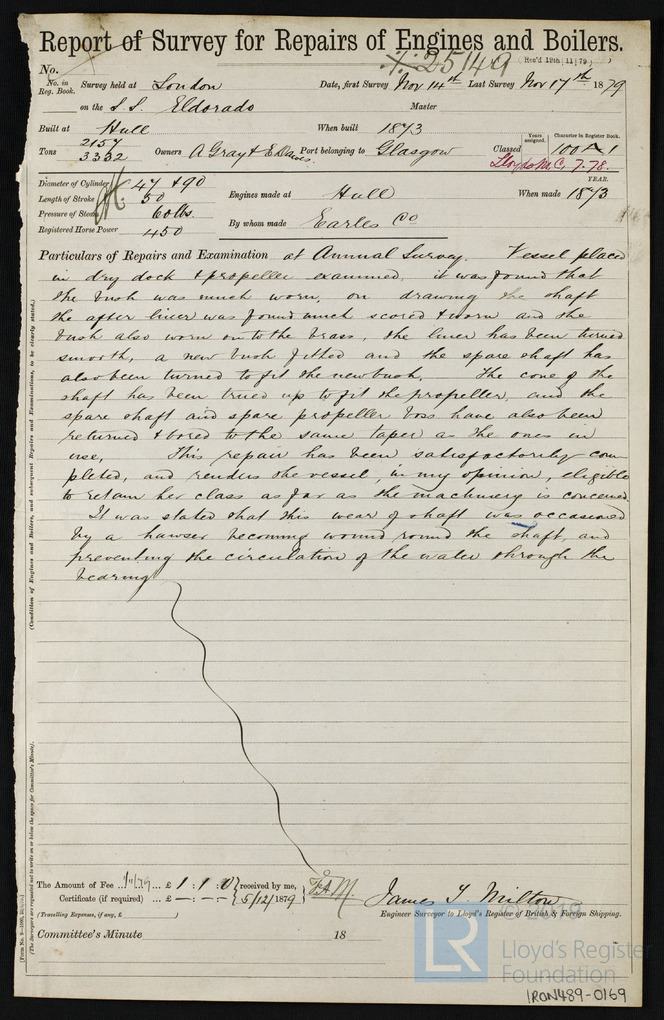 Report of Survey for Repairs of Engines and Boilers.
No. 25149 (Rec'd 19th | 11 | 79)
No. in Reg. Book. Survey held at London Date, first Survey Nov 14th Last Survey Nov 17th 1879
on the S.S. Eldorado Master
Built at Hull When built 1873
Tons 2157 3332 Owners A Gray & E Daws. Port belonging to Glasgow Years assigned. Character in Register Book. Classed 100 A 1
Lloyds M.C. 7.78.
Diameter of Cylinder 47 & 90 Engines made at Hull YEAR. When made 1873
Length of Stroke 50
Pressure of Steam 60 lbs. By whom made Earles Co
Registered Horse Power 450
Particulars of Repairs and Examination at Annual Survey. Vessel placed
in dry dock & propeller examined, it was found that
the bush was much worn, on drawing the shaft
the after liner was found much scored & worn and the
bush also worn on to the brass, the liner has been turned
smooth, a new bush fitted and the spare shaft has
also been turned to fit the new bush. The cone of the
shaft has been trued up to fit the propeller, and the
spare shaft and spare propeller boss have also been
returned & bored to the same taper as the ones in
use. This repair has been satisfactorily com
pleted, and renders the vessel, in my opinion, eligible
to retain her class as far as the machinery is concerned
It was stated that this wear of shaft was occasioned
by a hawser becoming wound round the shaft, and
preventing the circulation of the water through the
bearing
(Condition of Engines and Boilers, and subsequent Repairs and Examinations, to be clearly stated.)
(The Surveyors are requested not to write on or below the space for Committee's Minute).
The Amount of Fee ... £ 1 : 1 : 0 received by me,
Certificate (if required) ... £ — : — : — 5/12/1879
James T Milton
(Travelling Expenses, if any, £ )
Engineer Surveyor to Lloyd's Register of British & Foreign Shipping.
Committee's Minute 18
LR
Lloyd's Register
Foundation
IRON489-0169